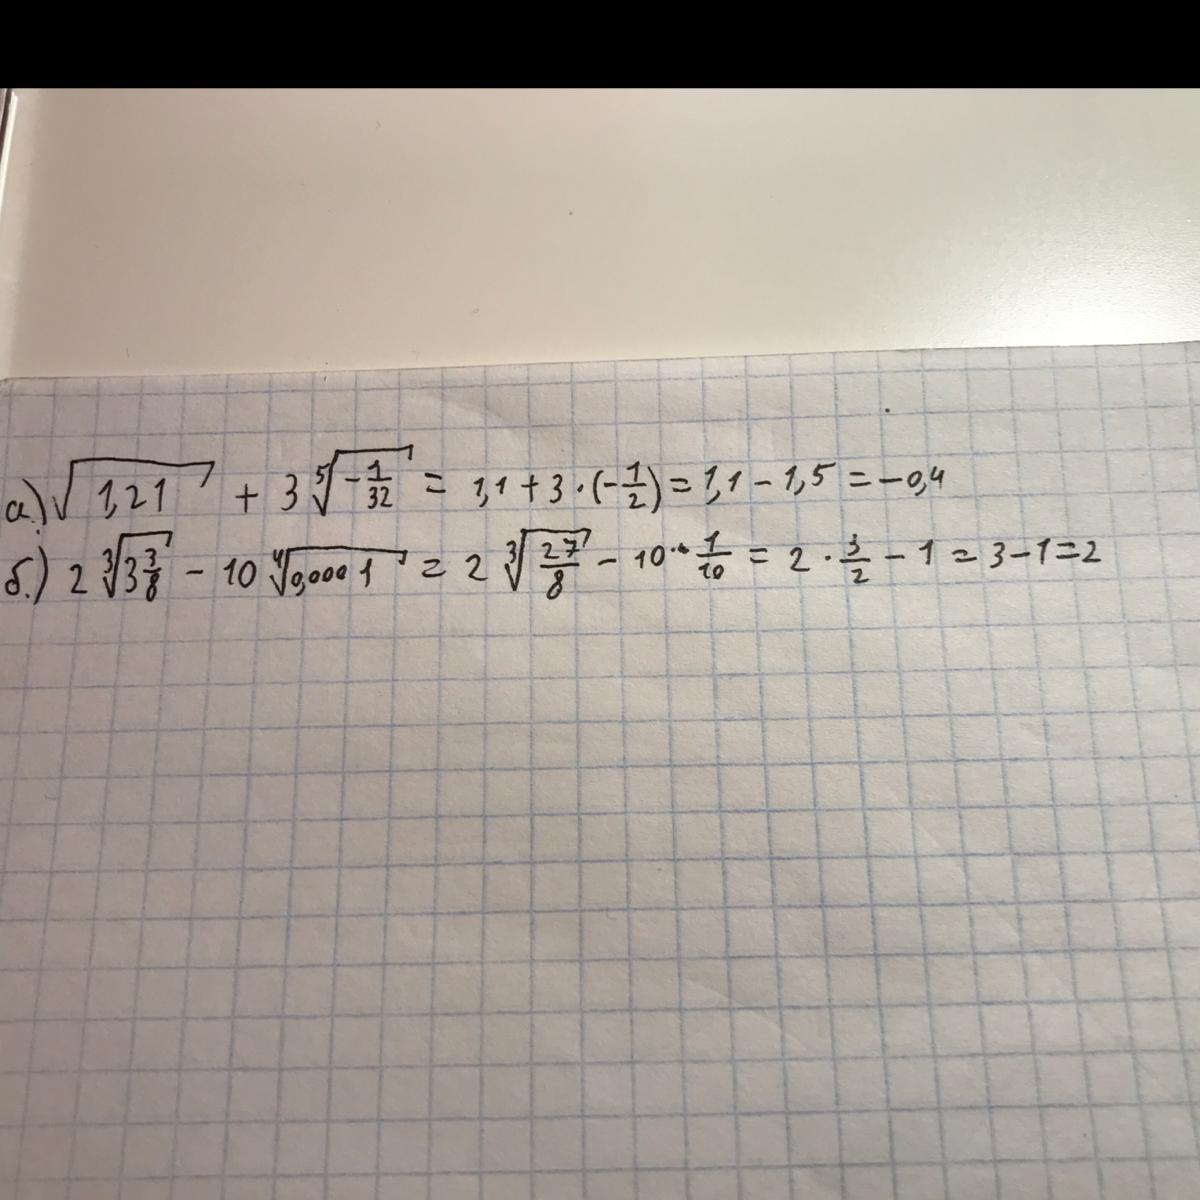 а.) √1,21 + 3 ⁵√(-1/32) = 1,1 + 3 · (-1/2) = 1,1 - 1,5 = -0,4
б.) 2 ³√(3 3/8) - 10 ⁴√0,0001 = 2 ³√(27/8) - 10 · 1/10 = 2 · 3/2 - 1 = 3 - 1 = 2